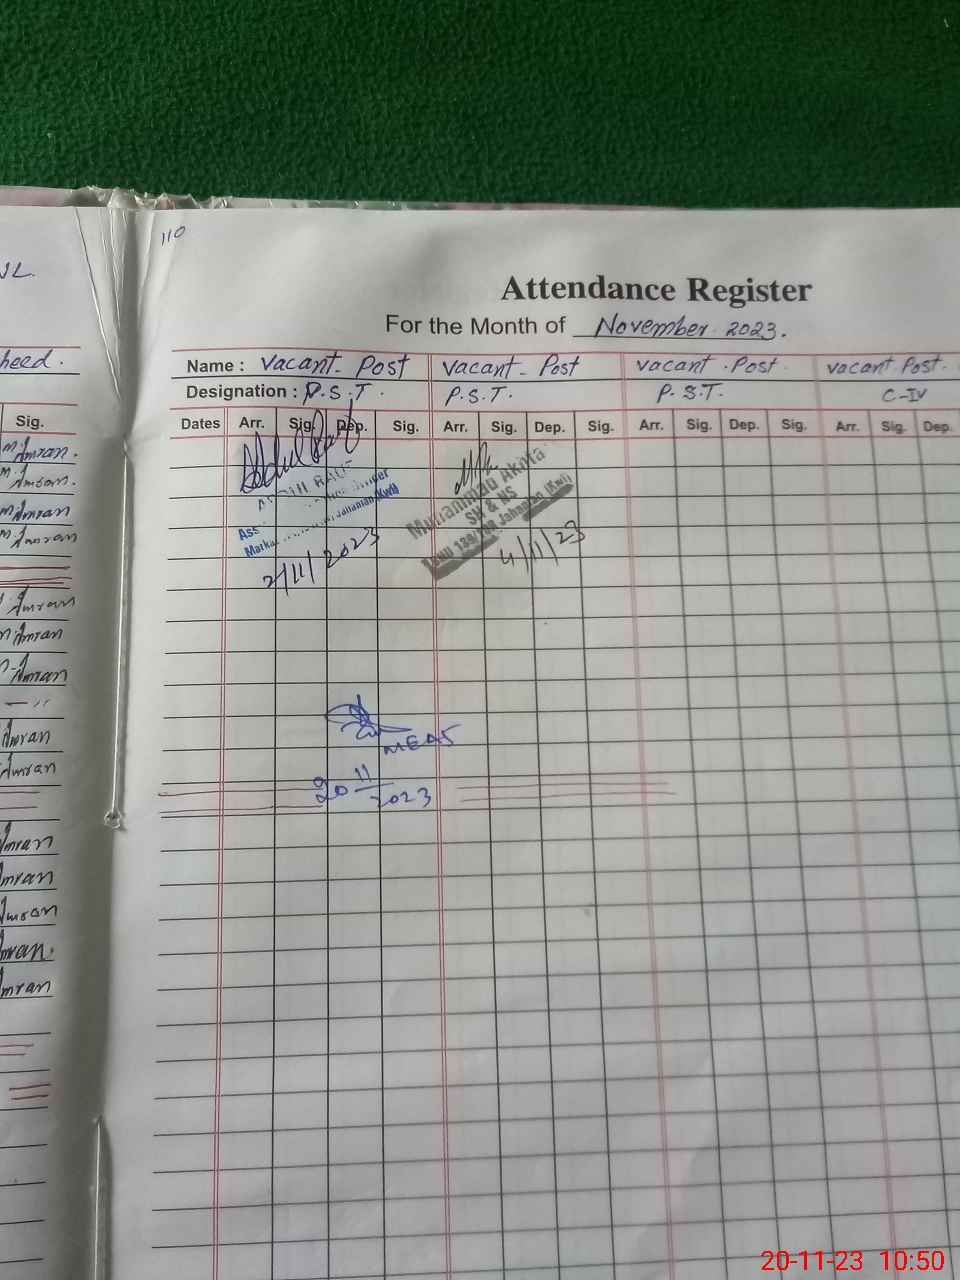 110
Attendance Register
For the Month of November 2023.
Name : Vacant Post Vacant Post Vacant Post Vacant Post
Designation : P.S.T. P.S.T. P.S.T. C-IV
Dates Arr. Sig. Dep. Sig. Arr. Sig. Dep. Sig. Arr. Sig. Dep. Sig. Arr. Sig. Dep.
Abdul Rauf
ABDUL RAUF
Jahanian (Kwl)
2/11/2023
Muhammad
SH & NS
Jahanian (Kwl)
4/11/23
MEA5
20/11/2023
heed.
Sig.
Imran.
Imran.
Imran
Imran
Imran
Imran
Imran
Imran
Imran
Imran
Imran
Imran
Imran.
Imran
20-11-23 10:50